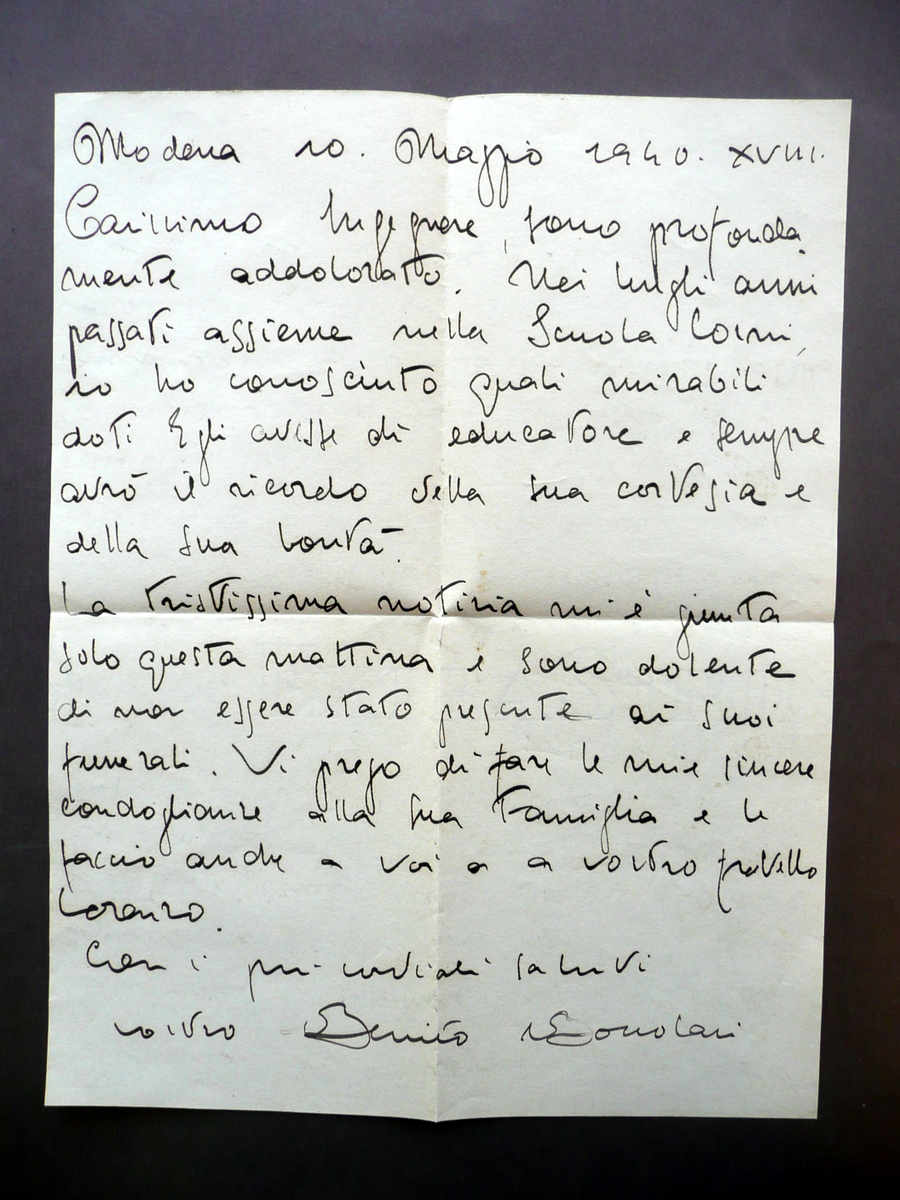 Modena 10. Maggio 1940. XVIII.
Carissimo Ingegnere, sono profonda
mente addolorato. Nei lunghi anni
passati assieme nella Scuola Corni,
io ho conosciuto quali mirabili
doti Egli avesse di educatore e sempre
avrò il ricordo della sua cortesia e
della sua bontà.
La tristissima notizia mi è giunta
solo questa mattina e sono dolente
di non essere stato presente ai suoi
funerali. Vi prego di fare le mie sincere
condoglianze alla sua Famiglia e le
faccio anche a voi e a vostro fratello
Lorenzo.
Con i più cordiali saluti
vostro Benito Boccolari